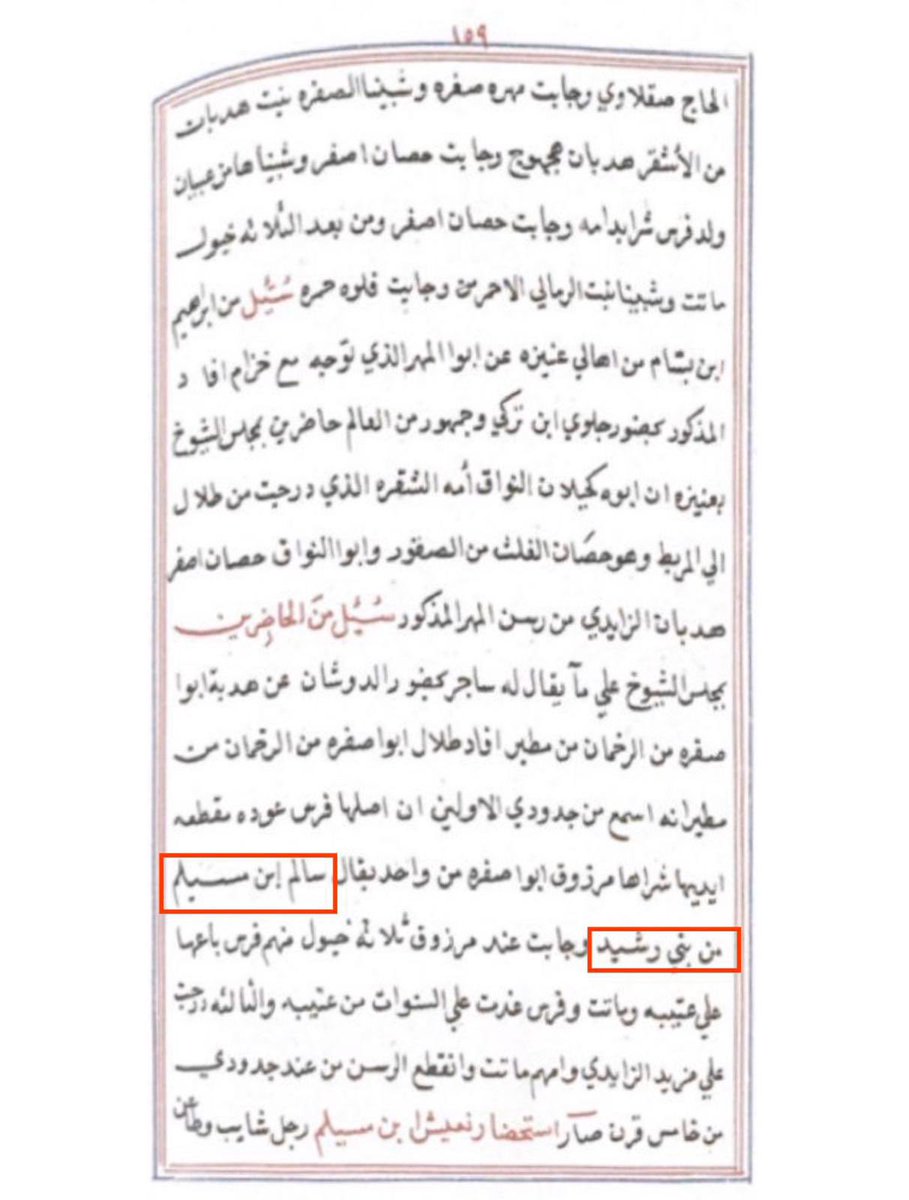 ١٥٩
الحاج صقلاوي وجابت مهره صفره وشبينا الصفره بنت هدبات
من الأشقر هدبان مجهوج وجابت حصان اصفر وشبيناها من عبيان
ولد فرس شرابدامه وجابت حصان اصفر ومن بعد الثلاثه خيول
ماتت وشبينا بنت الرمالي الاحمر من وجابت فلوه حمره سُئِل من ابراهيم
ابن بسّام من اهالي عنيزه عن ابوا المهر الذي توجه مع خزام افاد
المذكور بحضور جلوي ابن تركي وجمهور من العالم حاضرين بمجلس الشيوخ
بعنيزه ان ابوه كحيلان النواق أمه الشقره الذي درجت من طلال
الي المربط وهو حصَان الفلث من الصقور وابوا النواق حصان اصفر
هدبان الزايدي من رسن المهر المذكور سُئِل منَ الحاضِرين
بمجلس الشيوخ علي مآ يقال له ساجر بحضور الدوشان عن هدبة ابوا
صفره من الرخمان من مطير افاد طلال ابوا صفره من الرخمان من
مطير انه اسمع من جدودي الاولين ان اصلها فرس عوده مقطعه
ايديها شراها مرزوق ابوا صفره من واحد يقال سالم إبن مسيلم
من بني رشيد وجابت عند مرزوق ثلاثه خيول منهم فرس باعها
علي عتيبه وماتت وفرس غدت علي السنوات من عتيبه والثالثه درجت
علي مزيد الزايدي وامهم ماتت وانقطع الرسن من عند جدودي
من خامس قرن صآر استحضار نعيش ابن مسيلم رجل شايب وطاعن